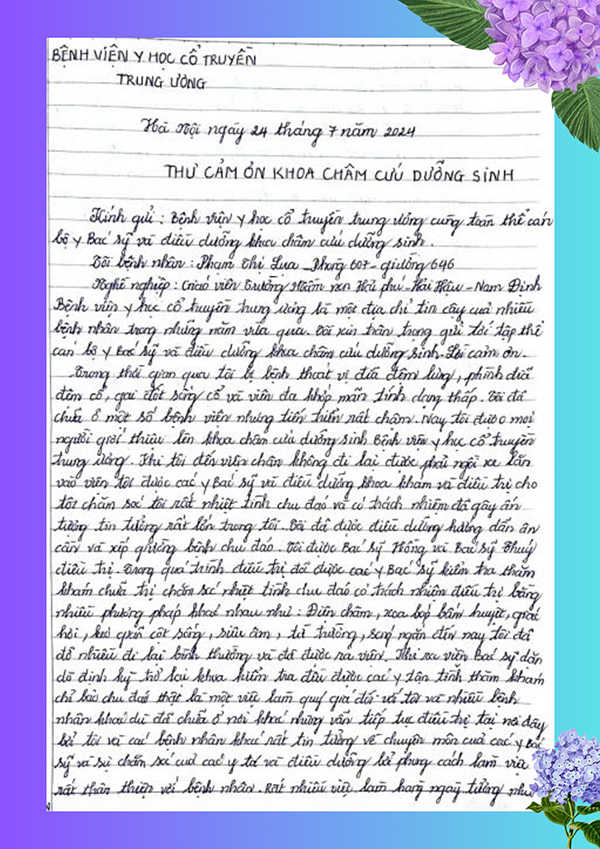 BỆNH VIỆN Y HỌC CỔ TRUYỀN
TRUNG ƯƠNG
Hà Nội ngày 24 tháng 7 năm 2024
THƯ CẢM ƠN KHOA CHÂM CỨU DƯỠNG SINH
Kính gửi : Bệnh viện y học cổ truyền trung ương cùng toàn thể cán
bộ y Bác sỹ và điều dưỡng khoa châm cứu dưỡng sinh .
Tôi bệnh nhân : Phạm Thị Lụa _ Phòng 607 - giường 646
Nghề nghiệp : Giáo viên Trường Mầm non Hải phú - Hải Hậu - Nam Định
Bệnh viện y học cổ truyền trung ương là một địa chỉ tin cậy của nhiều
bệnh nhân trong những năm vừa qua. Tôi xin trân trọng gửi tới tập thể
cán bộ y Bác sỹ và điều dưỡng khoa châm cứu dưỡng sinh - Lời cảm ơn.
Trong thời gian qua tôi bị bệnh thoát vị đĩa đệm lưng , phình đĩa
đệm cổ , gai đốt sống cổ và viêm đa khớp mãn tính dạng thấp. Tôi đã
chữa ở một số bệnh viện nhưng tiến triển rất chậm. Nay tôi được mọi
người giới thiệu lên khoa châm cứu dưỡng sinh Bệnh viện y học cổ truyền
trung ương . Khi tôi đến viện chân không đi lại được phải ngồi xe lăn
vào viện tôi được các y Bác sỹ và điều dưỡng khoa khám và điều trị cho
tôi chăm sóc tôi rất nhiệt tình chu đáo và có trách nhiệm đã gây ấn
tượng tin tưởng rất lớn trong tôi . Tôi đã được điều dưỡng hướng dẫn ân
cần và xếp giường bệnh chu đáo . Tôi được Bác sỹ Hồng và Bác sỹ Thuý
điều trị . Trong quá trình điều trị đã được các y Bác sỹ kiểm tra thăm
khám chữa trị chăm sóc nhiệt tình chu đáo có trách nhiệm điều trị bằng
nhiều phương pháp khác nhau như : Điện châm , xoa bóp bấm huyệt, giác
hơi , kéo giãn cột sống , siêu âm , từ trường , sóng ngắn đến nay tôi đã
đỡ nhiều đi lại bình thường và đã được ra viện . Khi ra viện Bác sỹ dặn
dò định kỳ trở lại khoa kiểm tra đều được các y tận tình thăm khám
chỉ bảo chu đáo thật là một việc làm quý giá đối với tôi và nhiều bệnh
nhân khác dù đã chữa ở nơi khác nhưng vẫn tiếp tục điều trị tại nơi đây
bởi tôi và các bệnh nhân khác rất tin tưởng về chuyên môn của các y Bác
sỹ và sự chăm sóc của các y tá và điều dưỡng bởi phong cách làm việc
rất thân thiện với bệnh nhân . Rất nhiều việc làm hàng ngày tưởng như